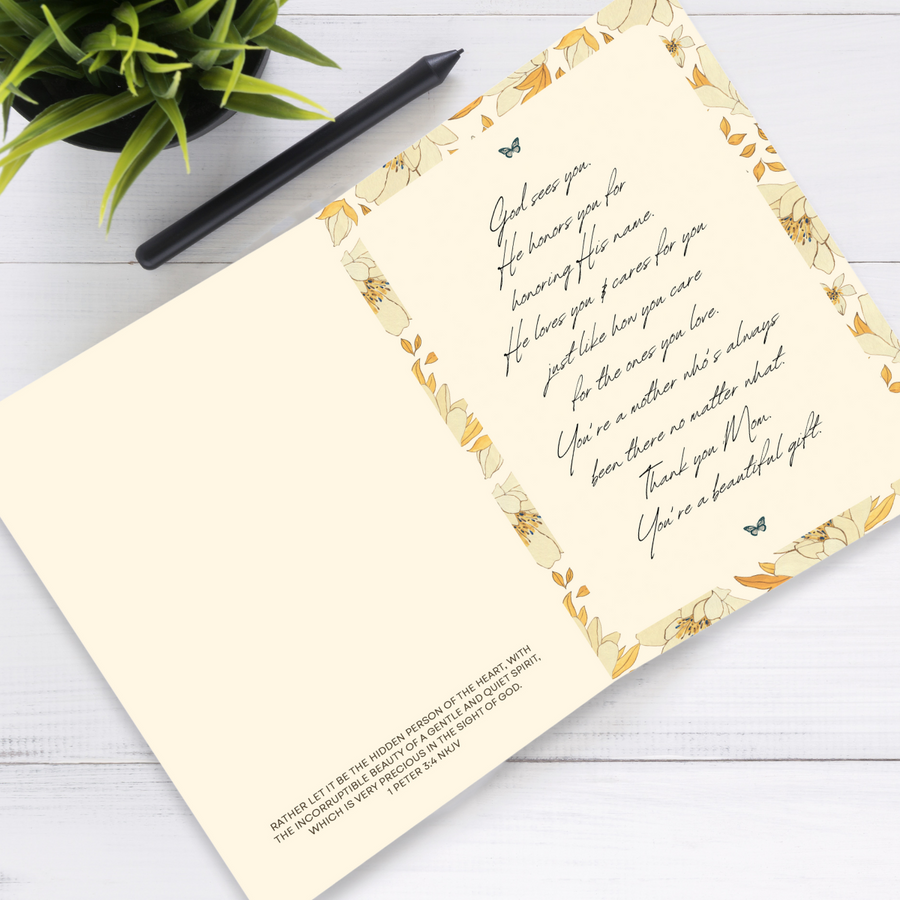 God sees you.
He honors you for
honoring His name.
He loves you & cares for you
just like how you care
for the ones you love.
You're a mother who's always
been there no matter what.
Thank you Mom.
You're a beautiful gift.
RATHER LET IT BE THE HIDDEN PERSON OF THE HEART, WITH
THE INCORRUPTIBLE BEAUTY OF A GENTLE AND QUIET SPIRIT,
WHICH IS VERY PRECIOUS IN THE SIGHT OF GOD.
1 PETER 3:4 NKJV